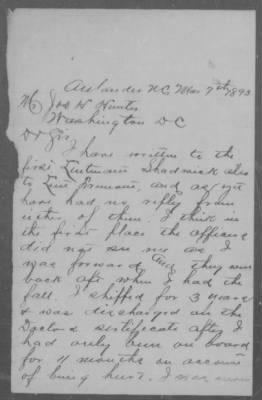 Aulander N.C. Mar 7th 1893
Mr Jos H Hunter
Washington D C
Dr Sir,
I have written to the
first Lieutenant Shadwick also
to Lieut and as yet
have had no reply from
either of them. I think in
the first place the officers
did not see me as I
was forward and they were
back aft when I had the
fall. I shipped for 3 years
& was discharged on the
Doctors sertificate after I
had only been on board
for 11 months on account
of being hurt. I was